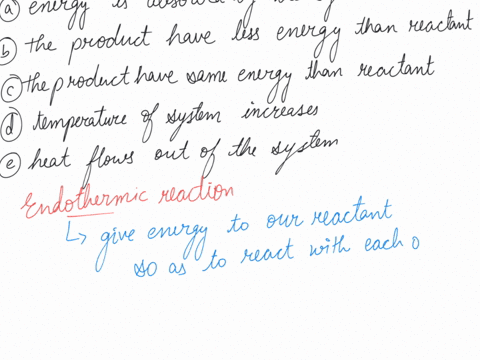 ⓐ energy is absorbed by the
ⓑ the product have less energy than reactant
ⓒ the product have same energy than reactant
ⓓ temperature of system increases
ⓔ heat flows out of the system
Endothermic reaction
↳ give energy to our reactant
so as to react with each o